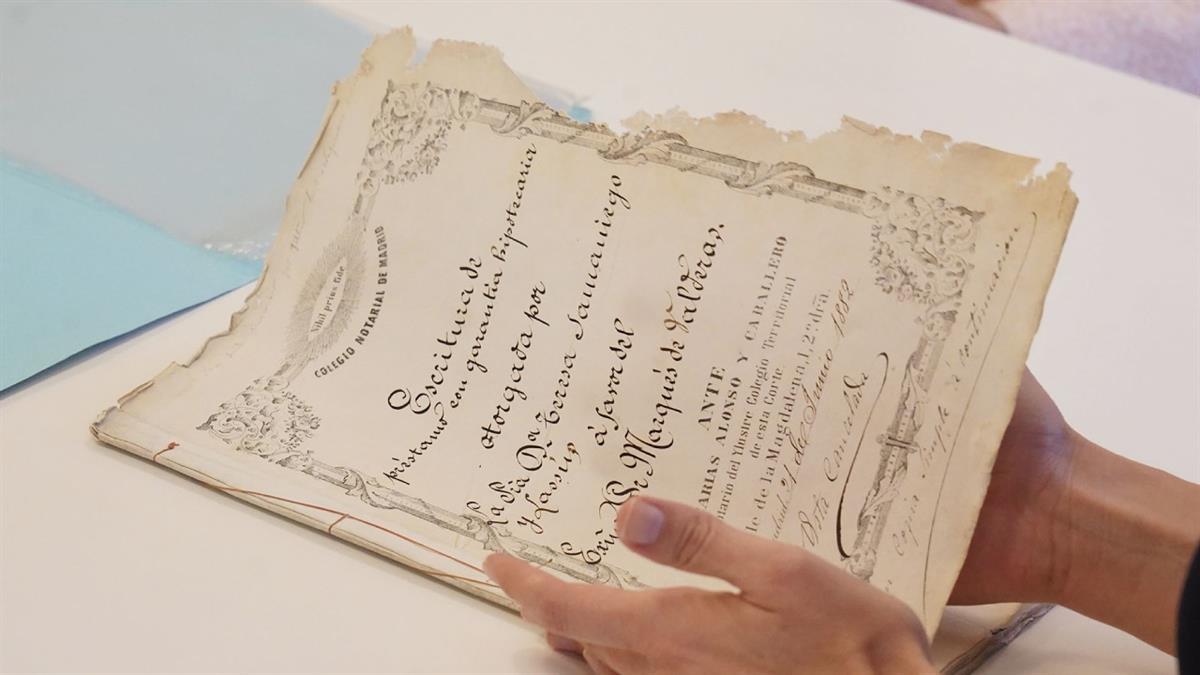 Nihil prius fide
COLEGIO NOTARIAL DE MADRID
Escritura de
préstamo con garantía hipotecaria
otorgada por
La Sra. Dª Teresa Samaniego
y Lassús,
á favor del
Sr. Marqués de Valderas.
ANTE
ARIAS ALONSO Y CABALLERO
del Ylustre Colegio Territorial
de esta Corte
de la Magdalena, 1, 2º dra
21 de Junio 1882
Copia simple